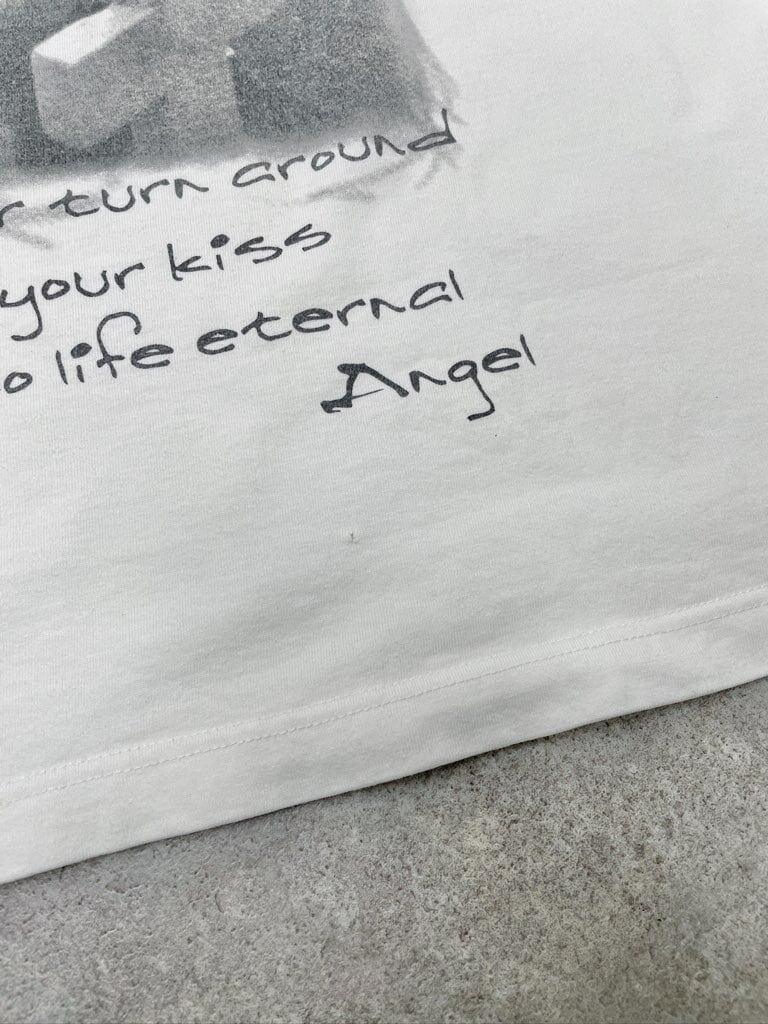 turn around
your kiss
life eternal
Angel